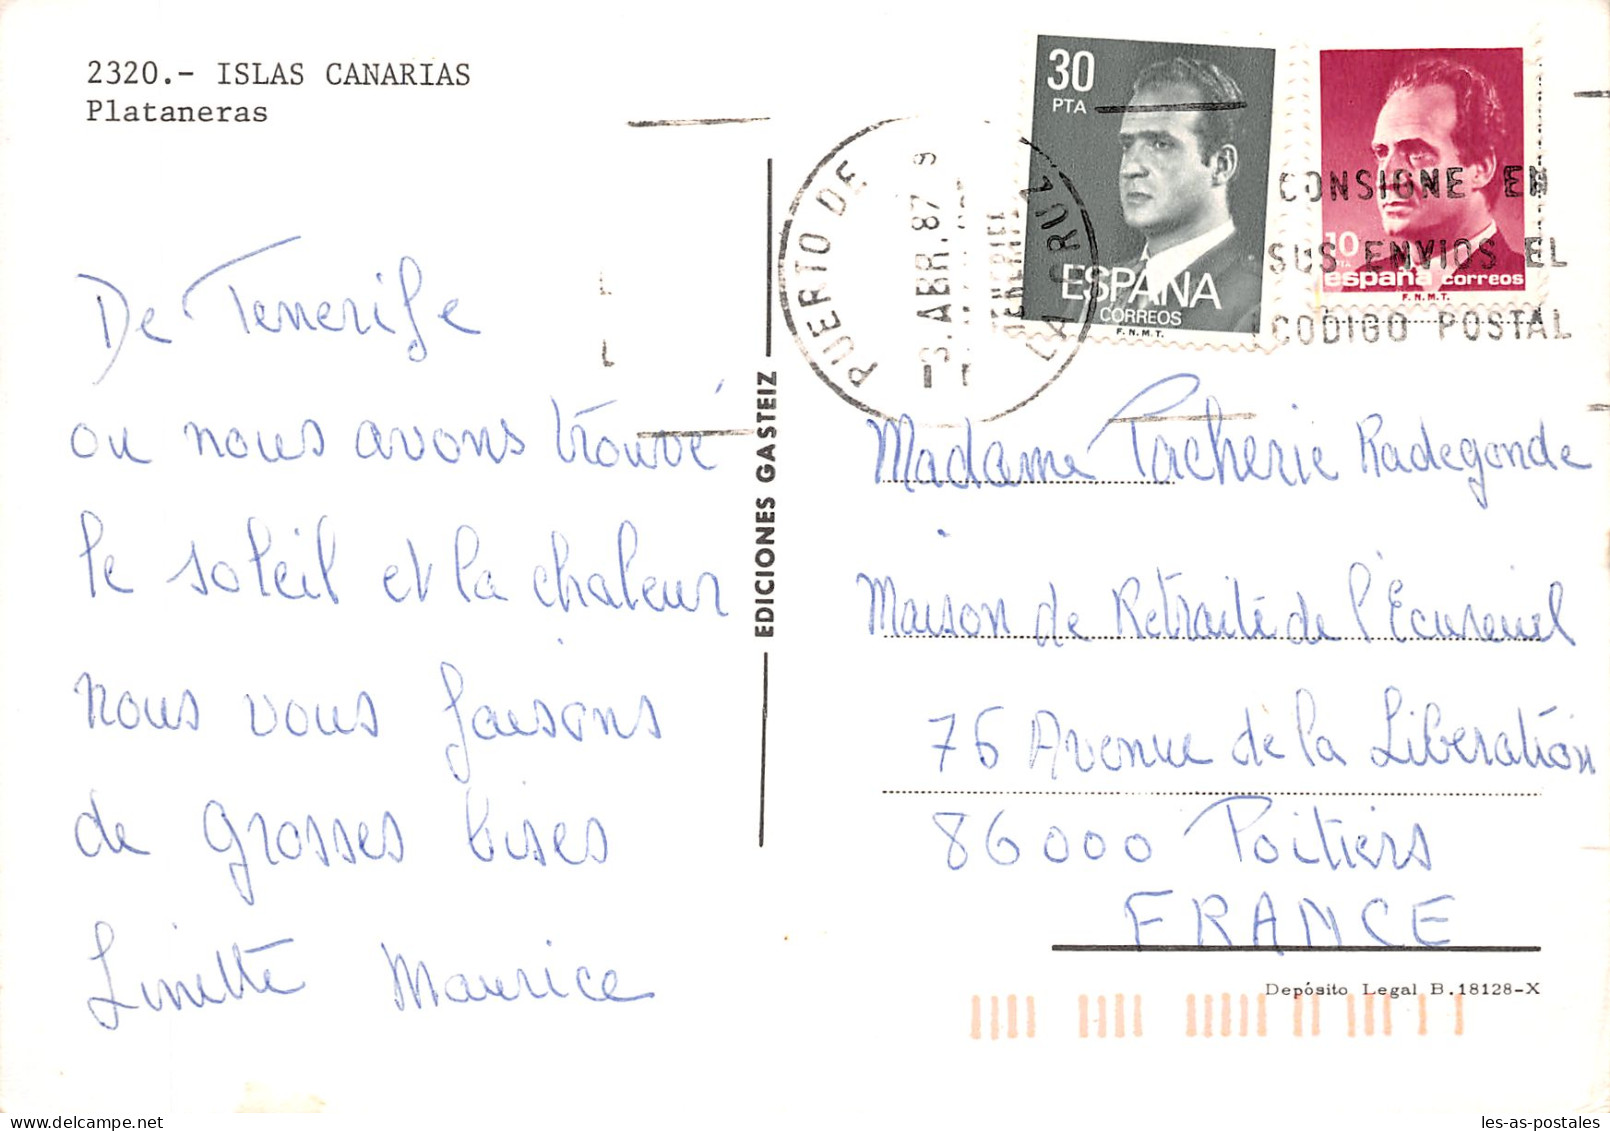 2320.- ISLAS CANARIAS
Plataneras
De Tenerife
ou nous avons trouvé
le soleil et la chaleur
nous vous faisons
de grosses bises
Linette Maurice
EDICIONES GASTEIZ
30
PTA
ESPAÑA
CORREOS
F.N.M.T.
10
PTA
españa correos
F.N.M.T.
PUERTO DE
LA CRUZ
ABR. 87
CONSIGNE EN
SUS ENVIOS EL
CODIGO POSTAL
Madame Pacherie Radegonde
Maison de Retraite de l'Ecureuil
76 Avenue de la Liberation
86000 Poitiers
FRANCE
Depósito Legal B.18128-X
les-as-postales